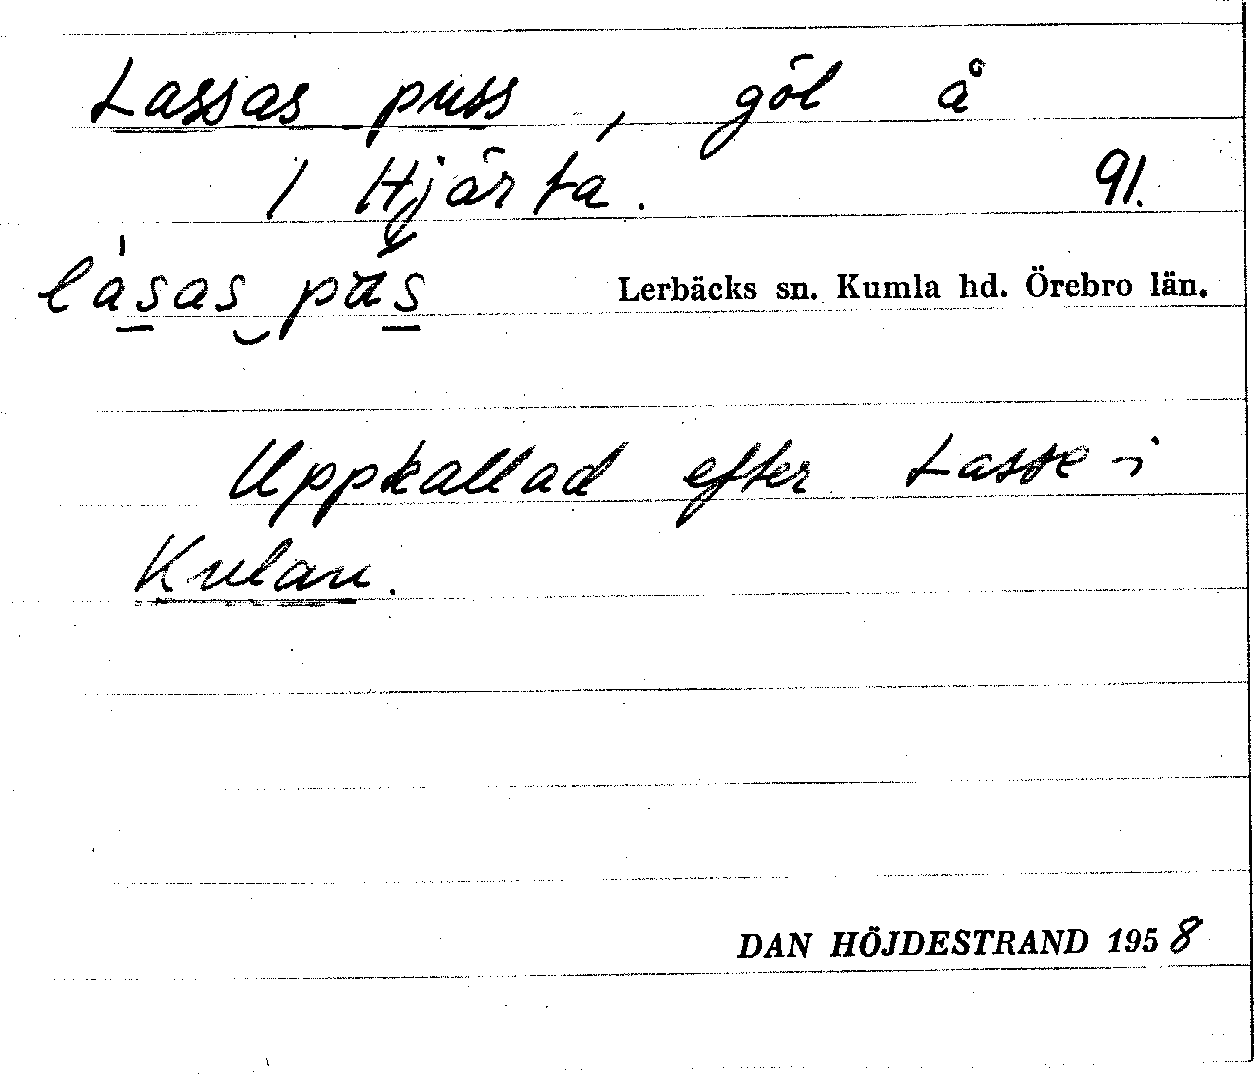 Lassas puss, göl å
1 Hjärta. 91.
lásas pus
Lerbäcks sn. Kumla hd. Örebro län.
Uppkallad efter Lasse i
Kulan.
DAN HÖJDESTRAND 1958